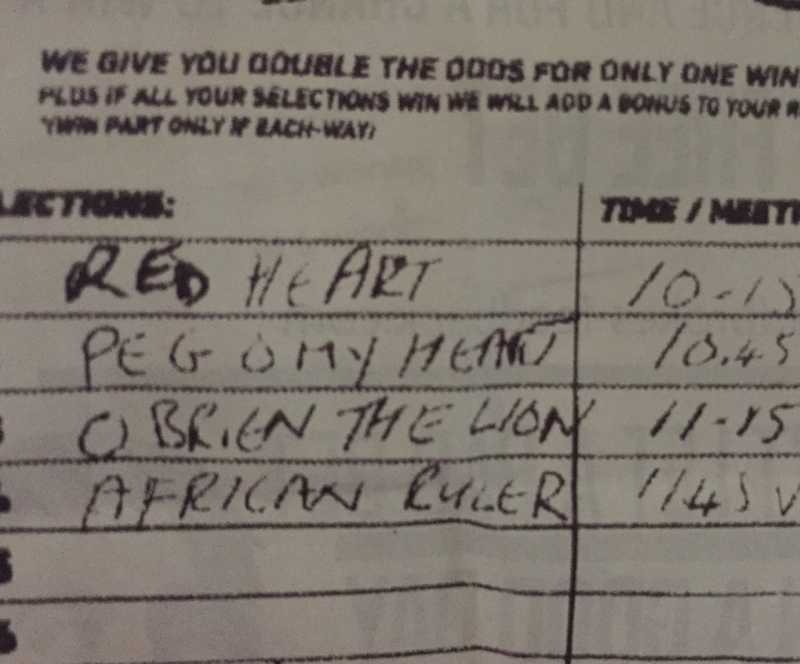 WE GIVE YOU DOUBLE THE ODDS FOR ONLY ONE WIN
PLUS IF ALL YOUR SELECTIONS WIN WE WILL ADD A BONUS TO YOUR R
(WIN PART ONLY IF EACH-WAY)
LECTIONS: TIME / MEETI
RED HEART 10-15
PEG O MY HEART 10.45
3 O BRIEN THE LION 11-15
4 AFRICAN RULER 1145 V
5
6